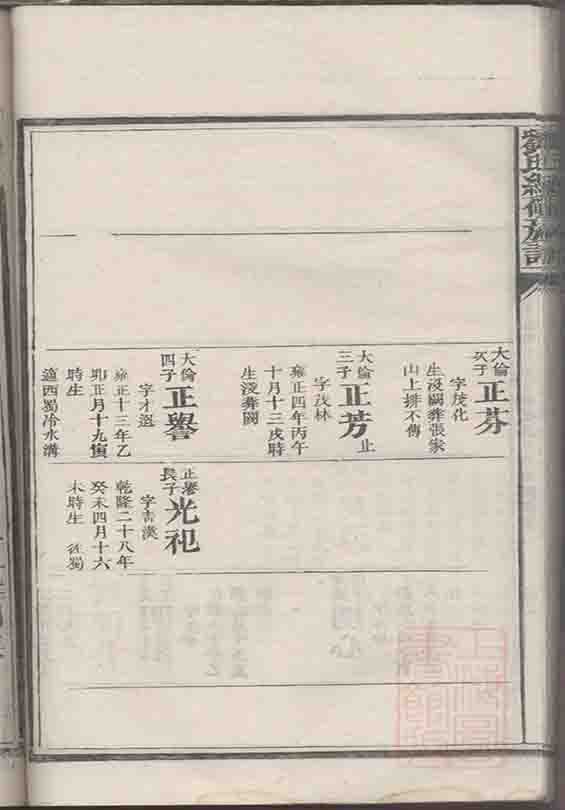 劉氏續修族譜
大倫
次子
正芬
字茂化
生沒闕葬張家
山上排不傳
大倫
三子
正芳
止
字茂林
雍正四年丙午
十月十三戌時
生沒葬闕
大倫
四子
正譽
字才選
雍正十三年乙
卯正月十九寅
時生
適西蜀冷水溝
正譽
長子
光祀
字吉漢
乾隆二十八年
癸未四月十六
未時生 在蜀